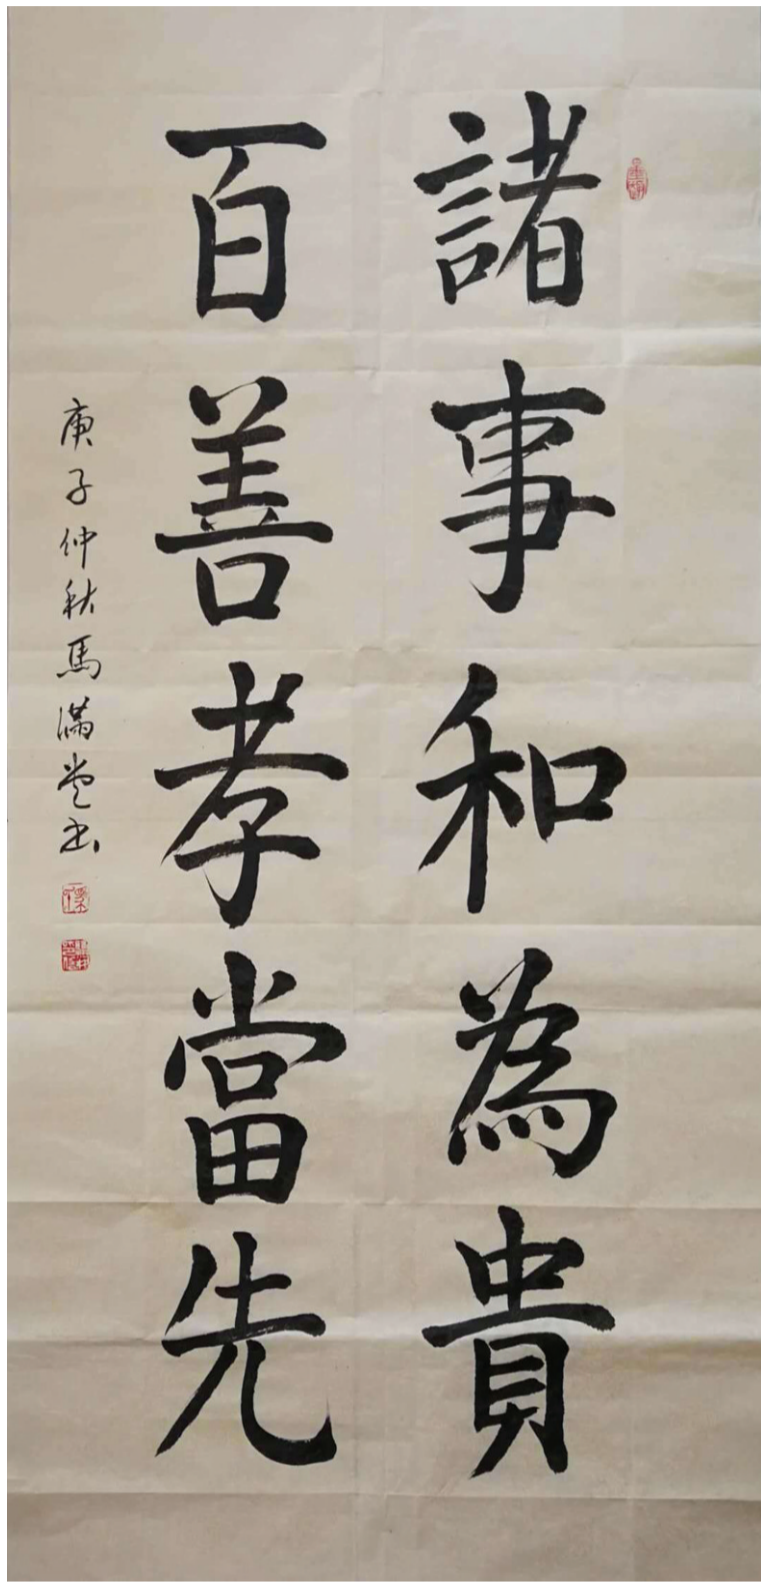 諸事和為貴
百善孝當先
庚子仲秋馬滿堂书